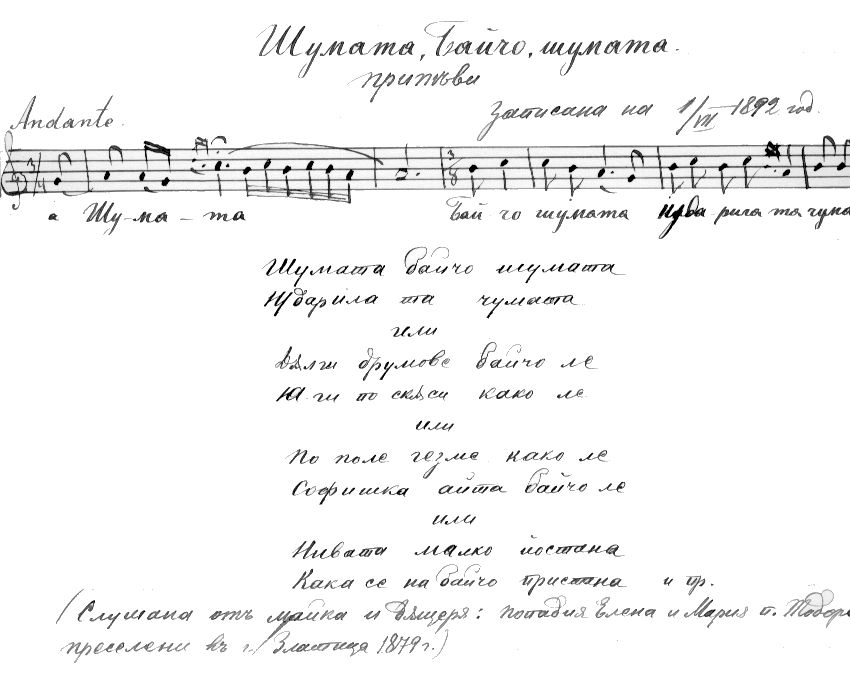 Шумата, Байчо, шумата.
припѣви
Andante.
Записана на 1/VII 1892 год.
а Шу-ма-та Бай-чо шумата та чума
Шумата байчо шумата
та чумата
или
Дѫлги друмове байчо ле
Ю-ги по скѫси како ле
или
По поле гезме како ле
Софишка айта байчо ле
или
Нивата малко йостана
Кака се на байчо пристана и пр.
(Слушана отъ майка и дѫщеря: попадия Елена и Мария п. Тодоро
преселени въ г. Златица 1879 г.)